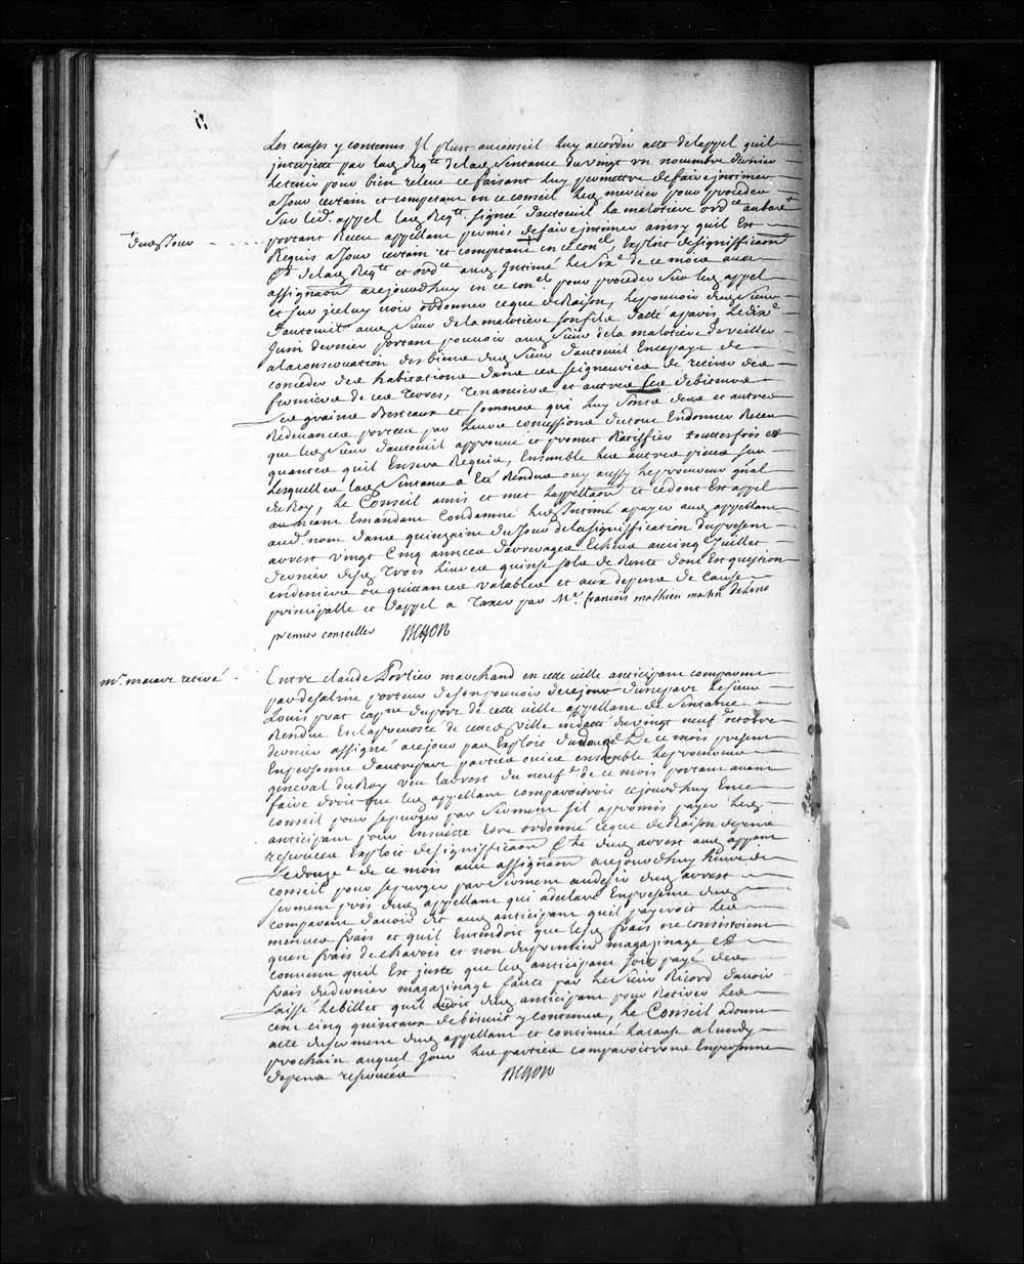 Les causes y contenues Il plust au conseil luy accorder acte de lappel quil
interjette par lad. Reqte de lad. Sentence du vingt un novembre dernier
le tenir pour bien relevé ce faisant luy permettre de faire intimer
a Jour certain et competant en ce conseil led. mercier pour proceder
Sur led. appel lad. Reqte signée dauteuil la malotiere ordce au bas
portant Receu appellant permis de faire intimer ainsy quil Est
†dud. Jour
Requis a Jour certain et competant en ce conel, Exploit de signiffication
de lad. Reqte et ordce aud. Intimé le Sixe de ce mois avec
assignaon a cejourdhuy en ce conel pour proceder Sur led. appel
et sur iceluy voir ordonner ce que de Raison, le pouvoir dud. Sieur
dauteuil aud. Sieur de la malotiere son fils
Juin dernier portant pouvoir aud. Sieur de la malotiere de veiller
a la conservation des biens dud. Sieur dauteuil
conceder des habitations dans ces seigneuries de retirer des
fermiers de ces Terres, Tenanciers et autres Ses debiteurs
Les grains Bestiaux et sommes qui luy sont deus et autres
Redevances portées par leurs concessions du tout En donner Receu
que led. Sieur dauteuil approuve et promet Ratiffier touttesfois et
quantes quil En sera Requis, Ensemble les autres pieces sur
lesquelles lad. Sentence a Eté Rendue ouy aussy le procureur gnal
du Roy, Le Conseil a mis et met lappellaon et ce dont Est appel
au neant Emandant Condamne led. Intimé a payer aud. appellant
aud. nom dans quinzaine du Jour de la signiffication du present
arrest vingt Cinq années darrerages Echeus au cinq Juillet
dernier desd. Trois livres quinze sols de Rente dont Est question
en deniers ou quittances valables et aux depens de Cause
principalle et dappel a Taxer par Me françois mathieu martin delino
premier conseiller Begon
Mr macart retiré
Entre claude Portier marchand en cette ville anticipant comparant
par de porteur de son pouvoir de ce jour dune part Le Sieur
Louis prat capne du port de cette ville appellant de Sentence
Rendue En la prevosté de cette d. ville En datte du vingt neuf octobre
dernier assigné a ce jour par Exploit du douze De ce mois present
En personne dautre part parties ouies ensemble le procureur
general du Roy veu larrest du neufe de ce mois portant avant
faire droit que led. appellant comparoitroit cejourdhuy En ce
conseil pour se purger par Serment sil a promis payer led.
anticipant pour Ensuitte Estre ordonné ce que de Raison depens
reservées Exploit de signifficaon dud. arrest aud. appant
Le douze de ce mois avec assignaon a cejourdhuy heure de
conseil pour se purger par Serment au desir dud. arrest
serment pris dud. appellant qui a declaré En presence dud.
comparant davoir dit aud. anticipant quil payeroit les
menues frais et quil Entendoit que lesd. frais ne consistoient
quen frais de charois et non du premier magazinage et
convenu quil Est juste que led. anticipant soit payé des
frais du dernier magazinage faute par le Sieur Ricord davoir
laissé le billet quil dud. anticipant pour Retirer les
cent cinq quintaux de biscuit y contenus, Le Conseil a donné
acte du serment dud. appellant et continué la cause a lundy
prochain auquel jour les parties comparoitront En personne
depens reservées Begon